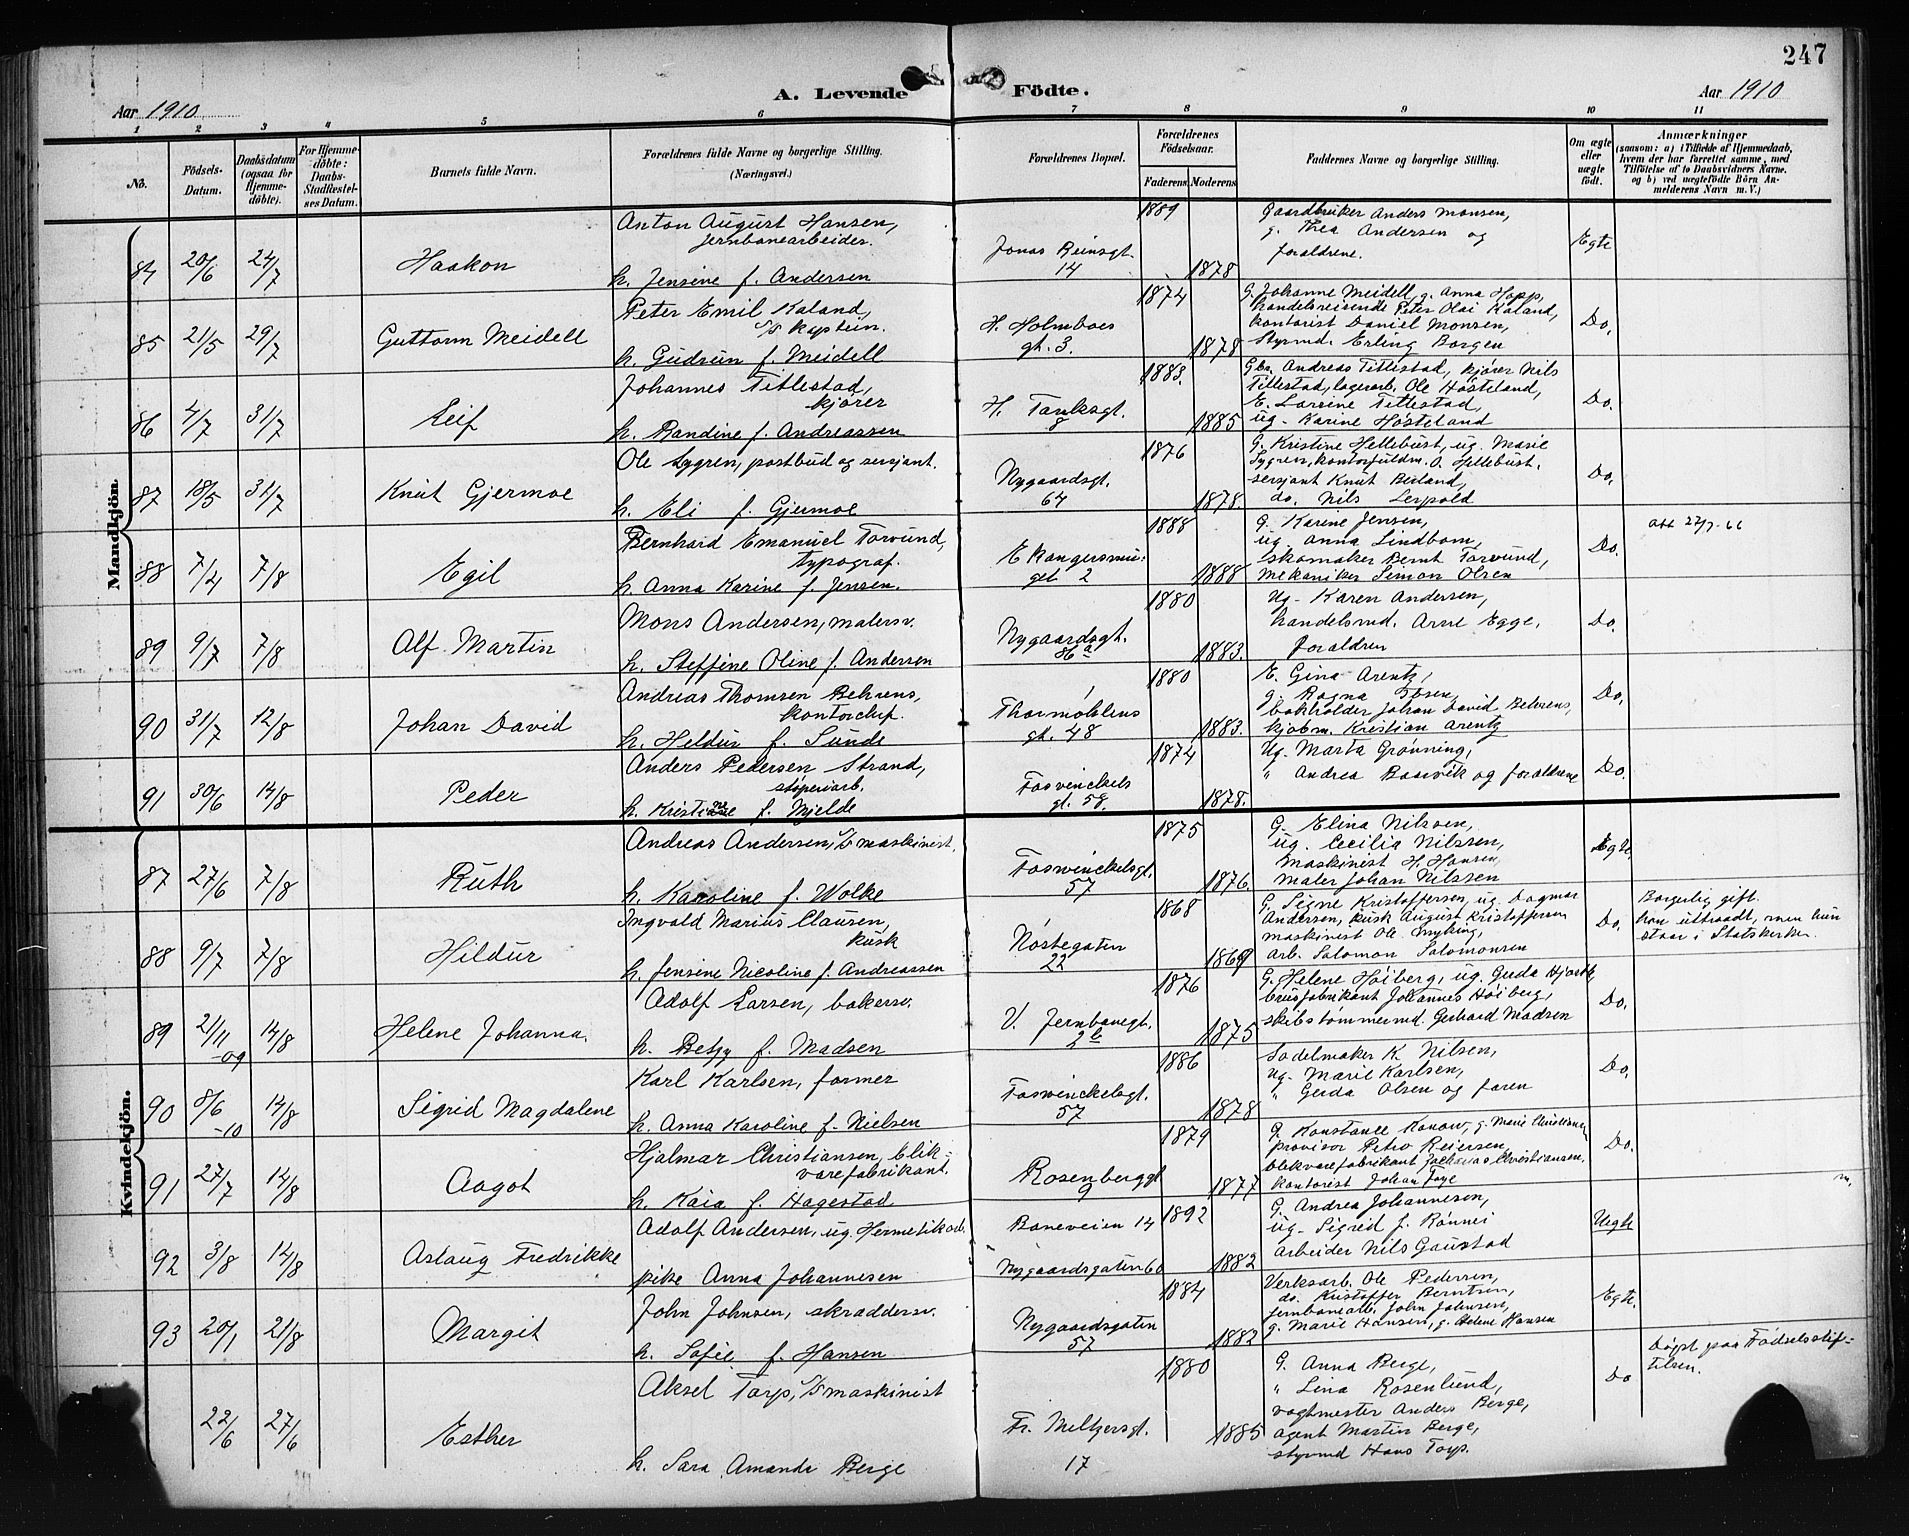 247
A. Levende Födte.
Aar 1910
Aar 1910
1 2 3 4 5 6 7 8 9 10 11
No.
Födsels-Datum.
Daabsdatum (ogsaa for Hjemme-döbte).
For Hjemme-döbte: Daabs-Stadfæstel-ses Datum.
Barnets fulde Navn.
Forældrenes fulde Navne og borgerlige Stilling.
(Næringsvei.)
Forældrenes Bopæl.
Forældrenes Födselsaar.
Faderens. Moderens.
Faddernes Navne og borgerlige Stilling.
Om ægte eller uægte födt.
Anmærkninger
(saasom: a) i Tilfælde af Hjemmedaab, hvem der har forrettet samme, med Tilföielse af to Daabsvidners Navne. og b) ved uægtefödte Börn An-melderens Navn m. V.)
Mandkjön.
84 20/6 24/7 Haakon
Anton August Hansen,
jernbanearbeider.
h. Jensine f. Andersen
Jonas Reinsgt. 14
1889 1878
Gaardbruker Anders Monsen,
g. Thea Andersen og
foraldrene.
Egte
85 21/5 29/7 Guttorm Meidell
Peter Emil Kaland,
D/S kaptein.
h. Gudrun f. Meidell
H. Holmboes gt. 3.
1874 1878
G. Johanne Meidell, g. Anna Hopp,
handelsreisende Peter Olai Kaland,
kontorist Daniel Monsen,
Styrmd. Erling Borgen
Do.
86 4/7 31/7 Leif
Johannes Titlestad,
kjører
h. Randine f. Andreassen
H. Tanksgt. 8
1883. 1885
Gbr. Andreas Titlestad, kjører Nils
Titlestad, lagerarb. Ole Høsteland,
E. Lorrine Titlestad,
ug. Karine Høsteland
Do.
87 18/5 31/7 Knut Gjermoe
Ole Lygren, postbud og sersjant.
h. Eli f. Gjermoe
Nygaardsgt. 64
1876 1878.
G. Kristine Hellebust, ug. Marie
Lygren, kontorfuldm. O. Hellebust.
sersjant Knut Birland,
do. Nils Lerpold
Do.
88 7/4 7/8 Egil
Bernhard Emanuel Torvund,
typograf.
h. Anna Karine f. Jensen.
Ekangersmu-get 2
1888 1888
G. Karine Jensen,
ug. Anna Lindbom,
skomaker Bernt Torvund,
mekaniker Simon Olsen
Do.
att 27/7-66
89 9/7 7/8 Alf Martin
Mons Andersen, malersv.
h. Steffine Oline f. Andersen
Nygaardsgt. 86 a
1880 1883.
Ug. Karen Andersen,
handelsmd. Arne Egge,
foraldren
Do.
90 31/7 12/8 Johan David
Andreas Thomsen Behrens,
kontorchef.
h. Hildur f. Sunde
Thormøhlens gt. 48
1880 1883.
E. Gina Arentz,
g. Ragna Ibsen,
bokholder Johan David Behrens,
kjøbm. Kristian Arentz
Do.
91 30/6 14/8 Peder
Anders Pedersen Strand,
støperiarb.
h. Kristiane f. Mjelde
Fosvinckels gt. 58.
1874 1878.
Ug. Marta Grønning,
" Andrea Baarvik og foraldrene
Do.
Kvindekjön.
87 27/6 7/8 Ruth
Andreas Andersen, D/S maskinist.
h. Karoline f. Wolke
Foswinckelsgt. 57
1875 1876
G. Elina Nilssen,
ug. Cecilia Nilssen,
Maskinist H. Hansen,
maler Johan Nilssen
Egte.
88 9/7 7/8 Hildur
Ingvald Marius Clausen,
kusk
h. Jensine Nicoline f. Andreassen
Nøstegaten 22
1868 1869
G. Signe Kristoffersen, ug. Dagmar
Andersen, kusk August Kristoffersen
maskinist Ole Myking,
arb. Salomon Salomonsen
Do.
Borgerlig gift.
han uttraadt, men hun
staar i Statskirken.
89 21/11-09 14/8 Helene Johanna.
Adolf Larsen, bakersv.
h. Betzy f. Madsen
V. Jernbanegt. 2 b
1876 1875
G. Helene Høiberg, ug. Gerda Hjorth,
brusfabrikant Johannes Høiberg,
skibstømmermd. Gerhard Madsen
Do.
90 8/6-10 14/8 Sigrid Magdalene
Karl Karlsen, former
h. Anna Karoline f. Nielsen
Foswinckelsgt. 57
1886 1878
Sadelmaker K. Nilsen,
ug. Marie Karlsen,
" Gerda Olsen og faren
Do.
91 27/7 14/8 Aagot
Hjalmar Christiansen, blik-
varefabrikant.
h. Kaia f. Hagestad
Rosenberggt 9
1879 1877
G. Konstance Konow, g. Marie Christiansen
provisor Petro Reiersen,
blekvarefabrikant Zacharias Christiansen.
kontorist Johan Foye
Do.
92 3/8 14/8 Aslaug Fredrikke
Adolf Andersen, ug. Hermetikarb.
pike Anna Johannesen
Baneveien 14
Nygaardsgaten 60
1892 1882
G. Andrea Johannesen,
ug. Sigrid f. Rønnei
arbeider Nils Gaustad
Uegte
93 20/1 21/8 Margit
John Johnsen, skraddersv.
h. Sofie f. Hansen
Nygaardsgaten 57
1884 1882
Verksarb. Ole Pedersen,
do. Kristoffer Berntsen,
jernbanearb. John Johnsen,
g. Marie Hansen, g. Helene Hansen
Egte.
22/6 27/6 Esther
Aksel Torp, D/S maskinist
h. Sara Amanda Berge
Fr. Meltzersgt. 17
1880 1885
G. Anna Berge,
" Lina Rosenlund,
vagtmester Anders Berge,
agent Martin Berge,
styrmd Hans Torp.
Do
Døpt paa Fødselsstif-
telsen.